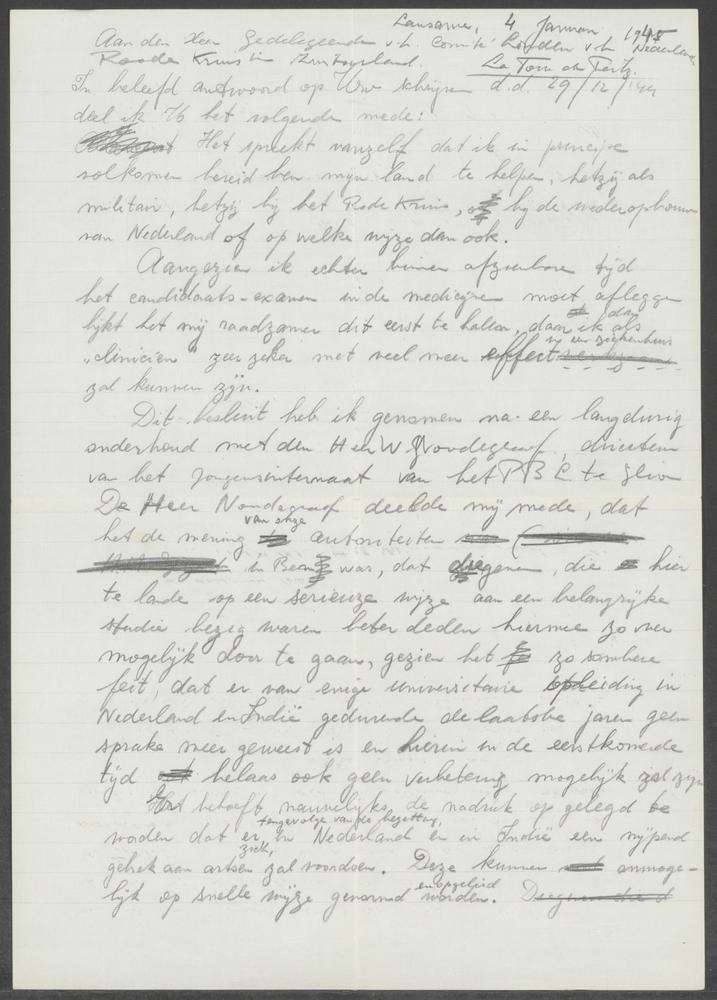 Lausanne, 4 Januari 1945
Aan den Heer Gedelegeerde v.h. Comité Londen v.h. Nederland
Roode Kruis in Zwitserland. La Tour de Peilz.
In beleefd antwoord op Uw schrijven d.d. 29/12/'44
deel ik U het volgende mede:
Het spreekt vanzelf dat ik in principe
volkomen bereid ben mijn land te helpen, hetzij als
militair, hetzij bij het Rode Kruis, of bij de wederopbouw
van Nederland of op welke wijze dan ook.
Aangezien ik echter binnen afzienbare tijd
het candidaats-examen in de medicijnen moet aflegge
lijkt het mij raadzamer dit eerst te halen, daar ik dan als
"clinicien" zeer zeker in een ziekenhuis met veel meer effect
zal kunnen zijn.
Dit besluit heb ik genomen na een langdurig
onderhoud met den Heer W Noodegraaf, directeur
van het jongensinternaat van het P.B.L. te Glion
De Heer Noodegraaf deelde mij mede, dat
het de mening van onze autoriteiten
in Bern was, dat diegenen, die hier
te lande op een serieuze wijze aan een belangrijke
studie bezig waren beter deden hiermee zo ver
mogelijk door te gaan, gezien het zo sombere
feit, dat er van enige universitaire opleiding in
Nederland en Indië gedurende de laatste jaren geen
sprake meer geweest is en hierin in de eerstkomende
tijd helaas ook geen verbetering mogelijk zal zijn
Het behoeft nauwelijks de nadruk op gelegd te
worden dat er, tengevolge van de bezetting, in Nederland en in Indië een nijpend
gebrek aan artsen zich, zal voordoen. Deze kunnen onmoge-
lijk op snelle wijze gevormd en opgeleid worden.